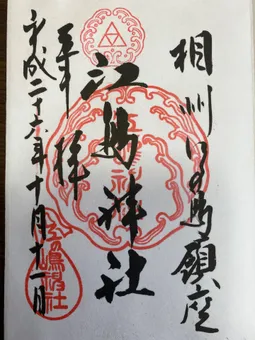 相州江の島鎮座
江島神社
奉拝
平成二十六年十月十一日
江嶋神社